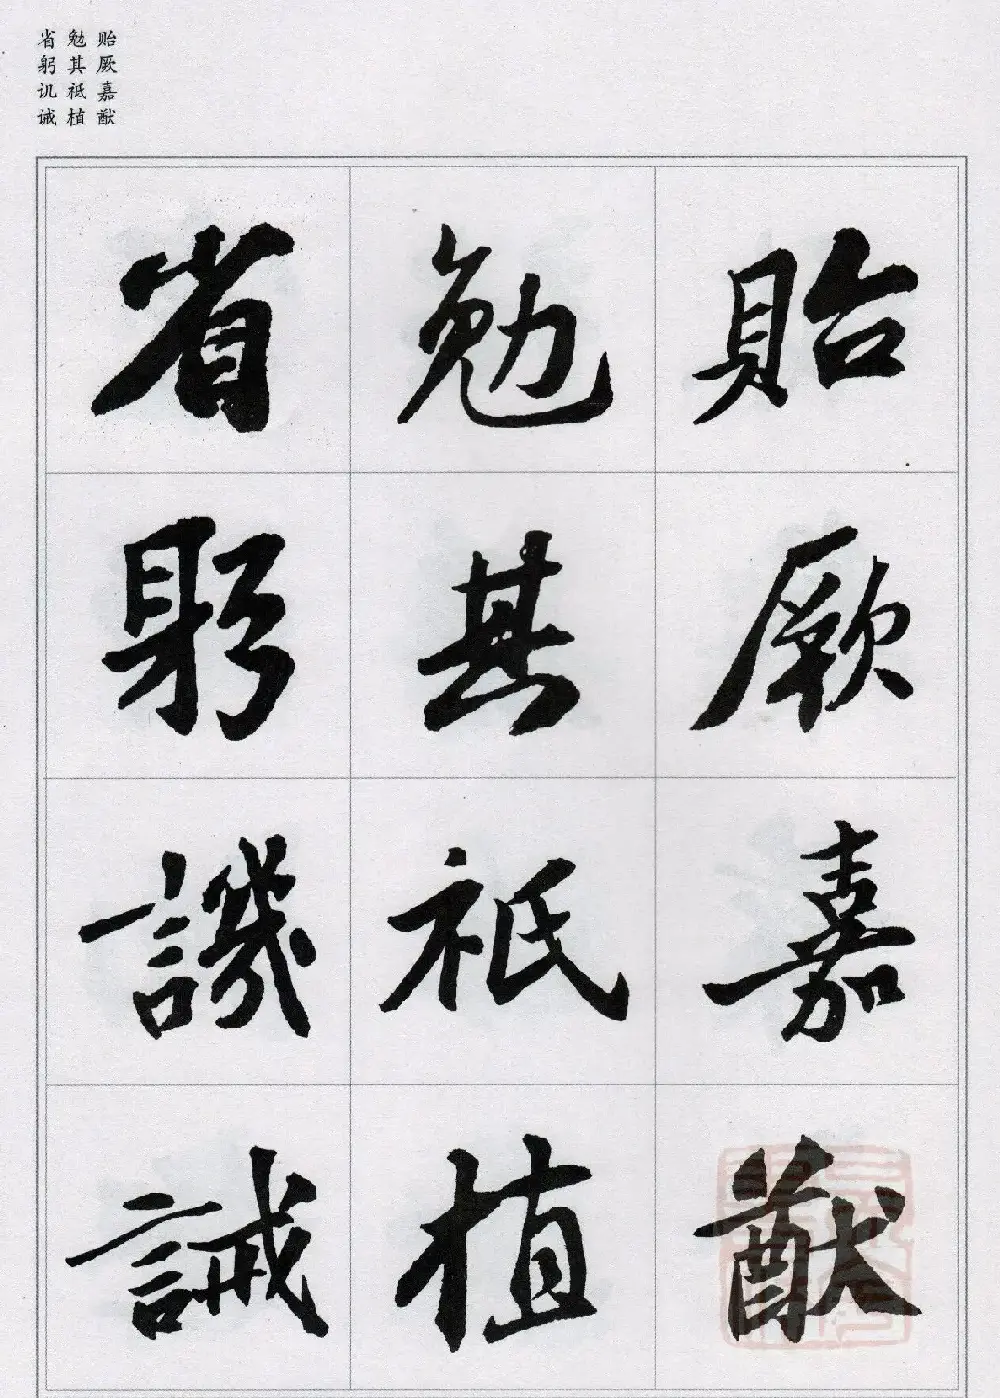 贻厥嘉猷
勉其祗植
省躬讥诫
貽厥嘉猷
勉其祗植
省躬譏誡